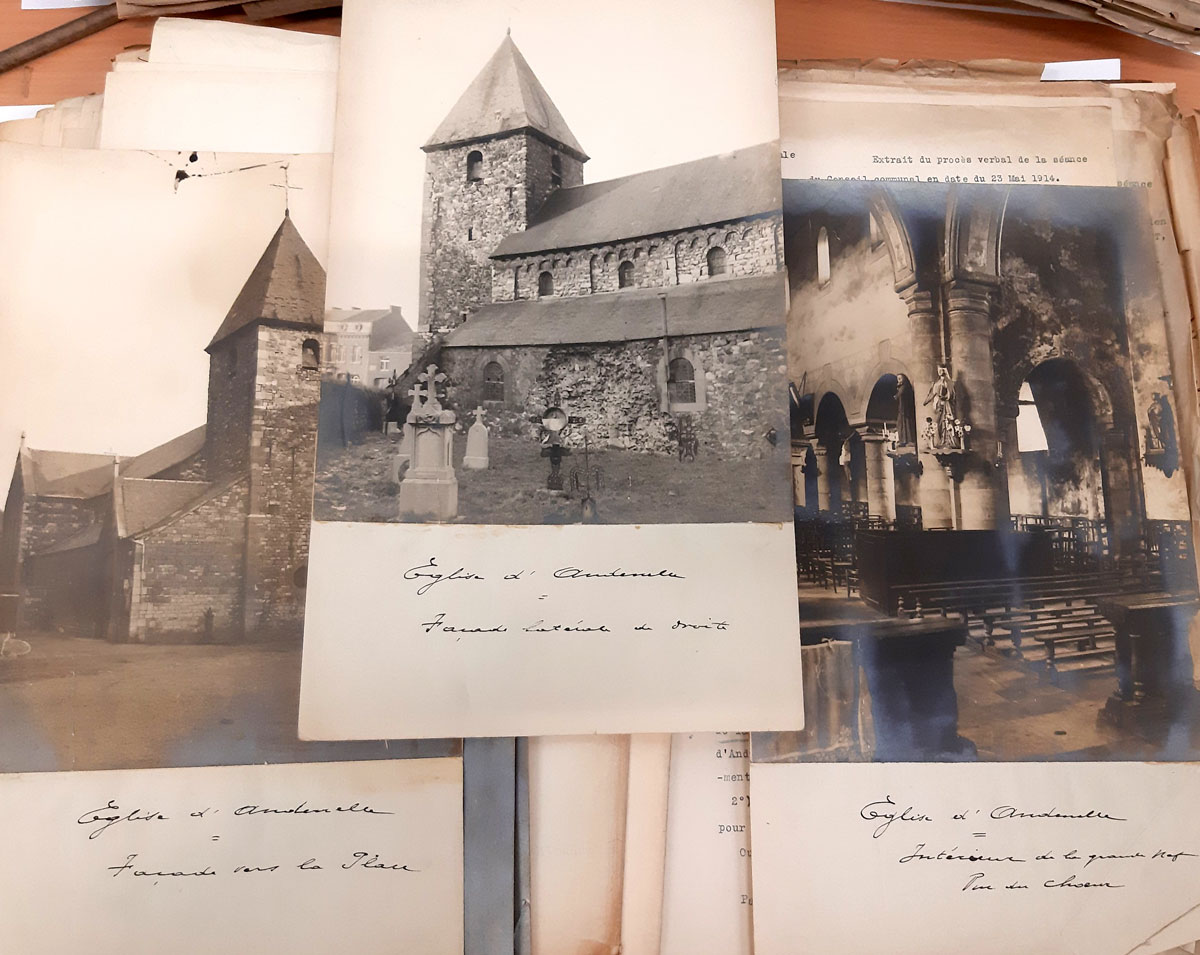 Extrait du procès verbal de la séance
du Conseil communal en date du 23 Mai 1914.
séance
Eglise d'Andenelle
=
Façade latérale de droite
Eglise d'Andenelle
=
Façade vers la Place
Eglise d'Andenelle
=
Intérieur de la grande Nef
Pris du choeur
d'And
-ment
2°)
pour